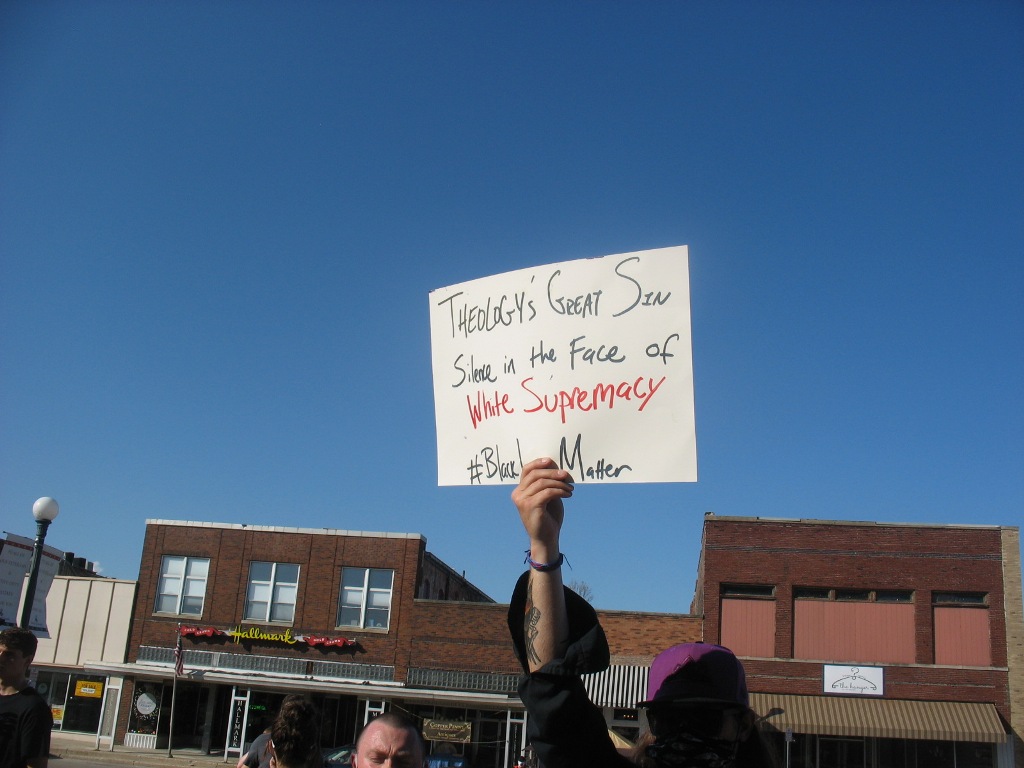 THEOLOGY'S GREAT SIN
Silence in the Face of
White Supremacy
#Black Matter
Hallmark
HALLMARK
the hanger